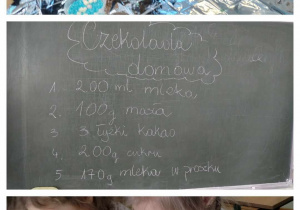 Czekolada
domowa
1. 200 ml mleka
2. 100g masła
3. 3 łyżki kakao
4. 200g cukru
5. 170g mleka w proszku